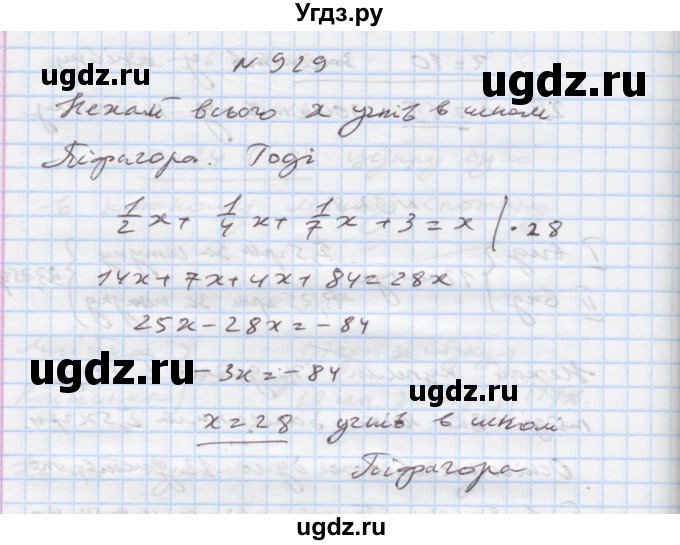 Угдз.ру
N 929
ugdz.ru ugdz.ru
Нехай всього x учнів в школі
Піфагора. Тоді
1/2 x + 1/4 x + 1/7 x + 3 = x | · 28
14x + 7x + 4x + 84 = 28x
25x - 28x = - 84
ugdz.ru ugdz.ru
- 3x = - 84
x = 28 учнів в школі
Піфагора
ugdz.ru